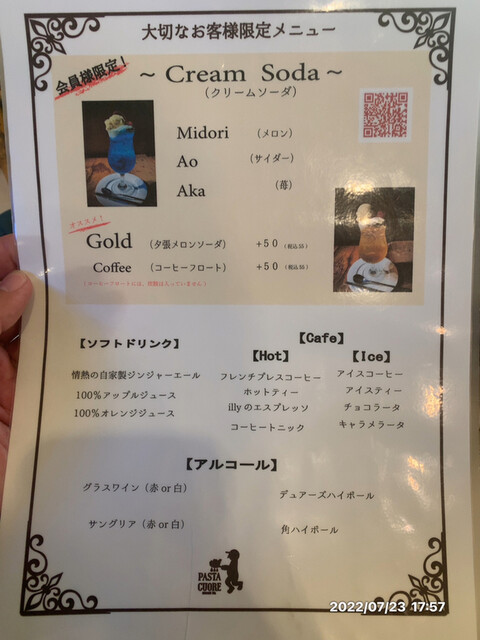 大切なお客様限定メニュー
会員様限定！
～ Cream Soda ～
（クリームソーダ）
Midori （メロン）
Ao （サイダー）
Aka （苺）
オススメ！
Gold （夕張メロンソーダ） +50（税込55）
Coffee （コーヒーフロート） +50（税込55）
【ソフトドリンク】
情熱の自家製ジンジャーエール
100%アップルジュース
100%オレンジジュース
【Cafe】
【Hot】
フレンチプレスコーヒー
ホットティー
illyのエスプレッソ
コーヒートニック
【Ice】
アイスコーヒー
アイスティー
チョコラータ
キャラメラータ
【アルコール】
グラスワイン（赤 or 白）
デュアーズハイボール
サングリア（赤 or 白）
角ハイボール
PASTA
CUORE
2022/07/23 17:57